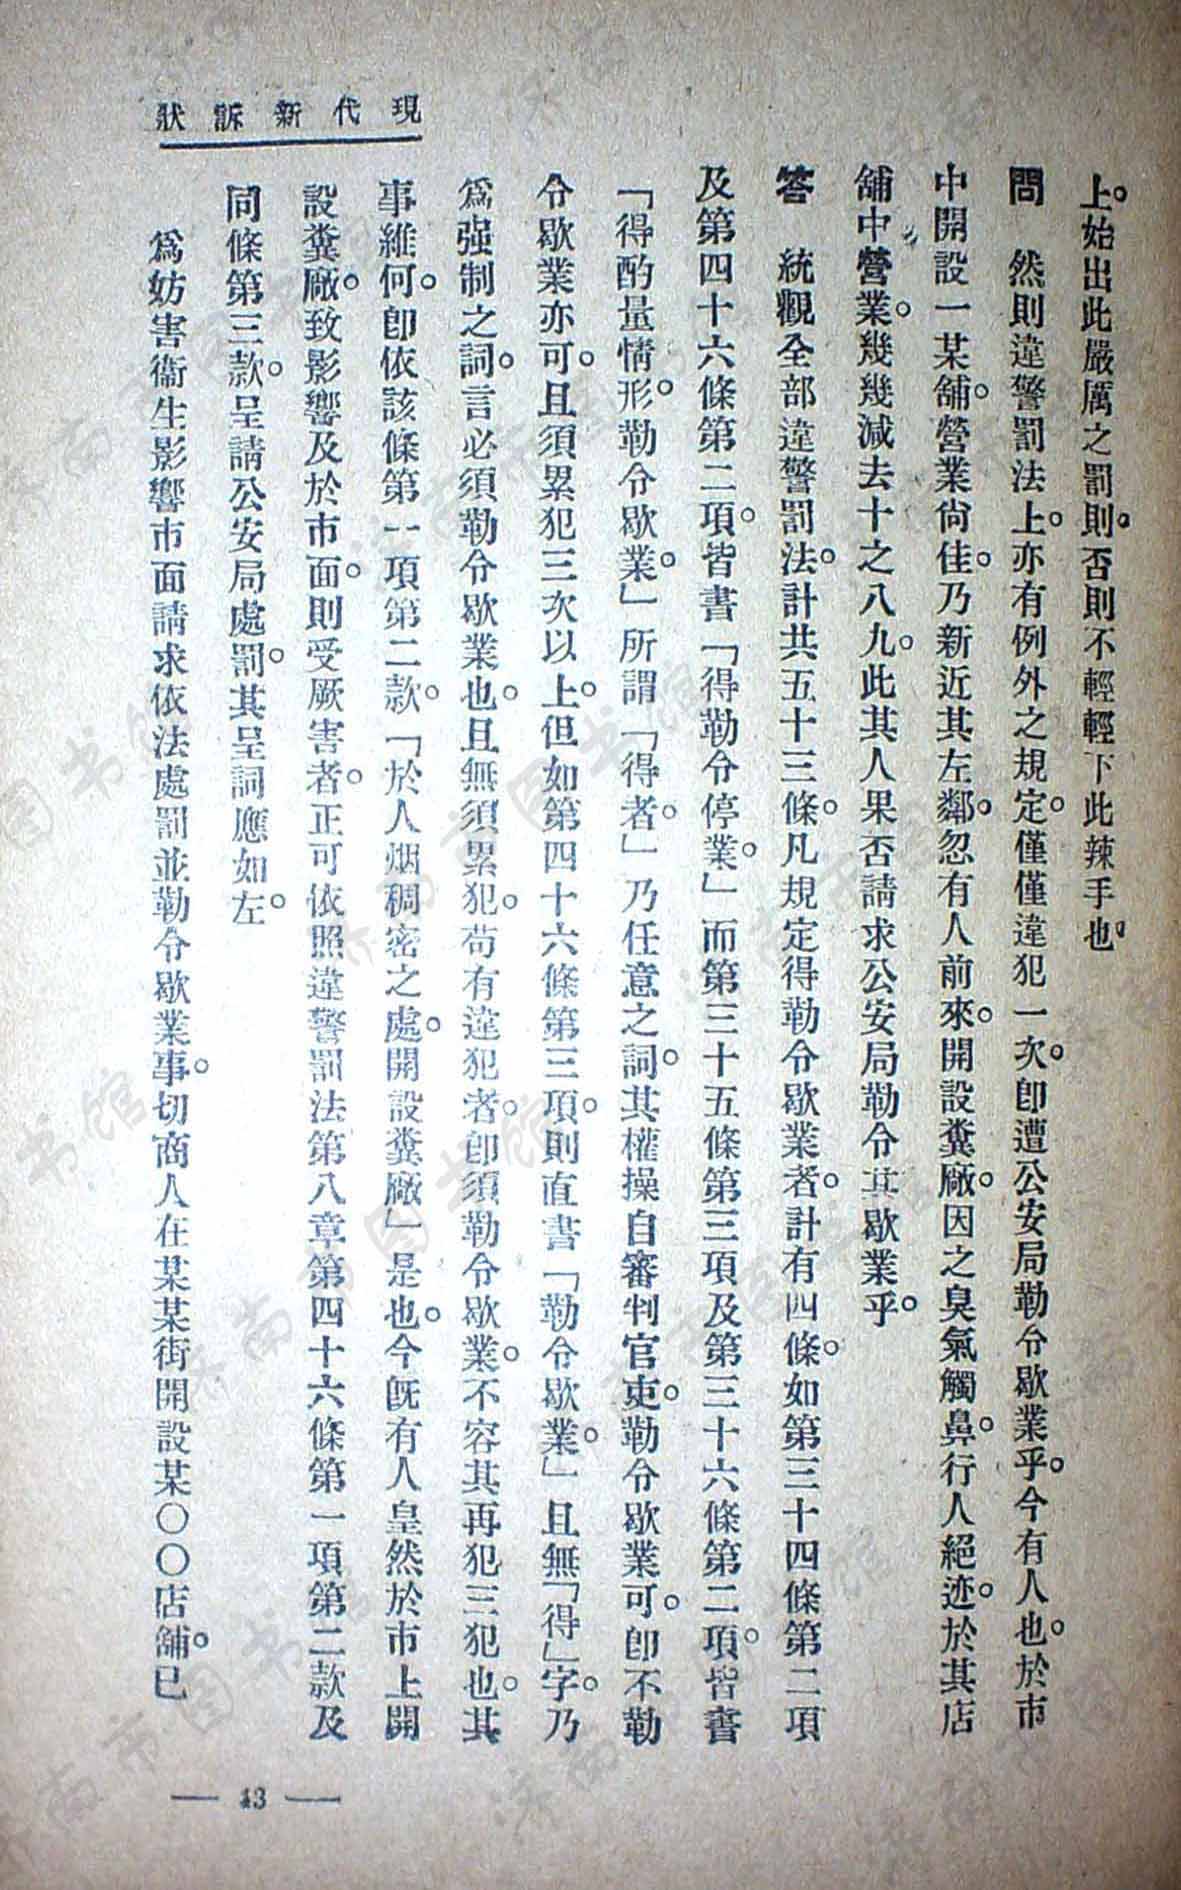 現代新訴狀
上。始出此嚴厲之罰。則否則不輕輕下此辣手也。
問　然則違警罰法上。亦有例外之規定。僅僅違犯一次。卽遭公安局勒令歇業乎。今有人也。於市
中開設一某舖。營業尙佳。乃新近其左鄰。忽有人前來。開設糞廠。因之臭氣觸鼻。行人絕迹。於其店
舖中營業。幾幾減去十之八九。此其人果否請求公安局勒令其歇業乎。
答　統觀全部違警罰法。計共五十三條。凡規定得勒令歇業者。計有四條。如第三十四條第二項
及第四十六條第二項。皆書「得勒令停業。」而第三十五條第三項及第三十六條第二項。皆書
「得酌量情形。勒令歇業。」所謂「得者。」乃任意之詞。其權操自審判官吏。勒令歇業可。卽不勒
令歇業亦可。且須累犯三次以上。但如第四十六條第三項。則直書「勒令歇業。」且無「得」字。乃
爲强制之詞。言必須勒令歇業也。且無須累犯。苟有違犯者。卽須勒令歇業。不容其再犯三犯也。其
事維何。卽依該條第一項第二款。「於人烟稠密之處。開設糞廠」是也。今旣有人皇然於市上開
設糞廠。致影響及於市面。則受厥害者。正可依照違警罰法第八章第四十六條第一項第二款及
同條第三款。呈請公安局處罰。其呈詞應如左。
爲妨害衞生影響市面請求依法處罰並勒令歇業事。切商人在某某街開設某〇〇店舖。已
— 43 —
济南市图书馆